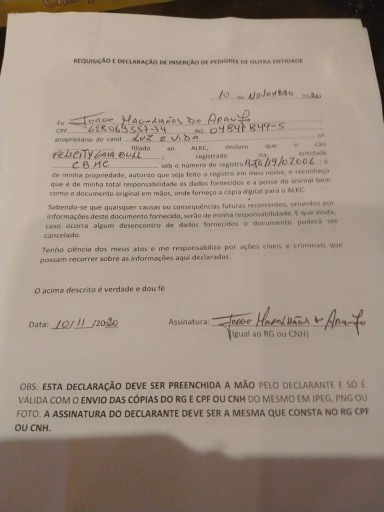 REQUISIÇÃO E DECLARAÇÃO DE INSERÇÃO DE PEDIGREE DE OUTRA ENTIDADE
10 DE NOVEMBRO 2020
Eu JORGE MAGALHÃES DO ARAUJO
CPF 628069557-34 RG 04847849-5
proprietário do canil LUZ E VIDA nº
filiado ao ALKC, declaro que o cão
FELICITY GAIA BULL registrado na entidade
CBMC sob o número de registro é
de minha propriedade, autorizo que seja feito o registro em meu nome, e reconheço
que é de minha total responsabilidade os dados fornecidos e a posse do animal bem
como o documento original em mãos, onde forneço a cópia digital para o ALKC.
Sabendo-se que quaisquer causas ou consequências futuras recorrentes, oriundos por
informações deste documento fornecido, serão de minha responsabilidade. E que ainda,
caso ocorra algum desencontro de dados fornecidos o documento poderá ser
cancelado.
Tenho ciência dos meus atos e me responsabilizo por ações cíveis e criminais que
possam recorrer sobre as informações aqui declaradas.
O acima descrito é verdade e dou fé
Data: 10/11/2020 Assinatura: Jorge Magalhães do Araujo
(Igual ao RG ou CNH)
OBS: ESTA DECLARAÇÃO DEVE SER PREENCHIDA A MÃO PELO DECLARANTE E SÓ É
VÁLIDA COM O ENVIO DAS CÓPIAS DO RG E CPF OU CNH DO MESMO EM JPEG, PNG OU
FOTO. A ASSINATURA DO DECLARANTE DEVE SER A MESMA QUE CONSTA NO RG CPF
OU CNH.